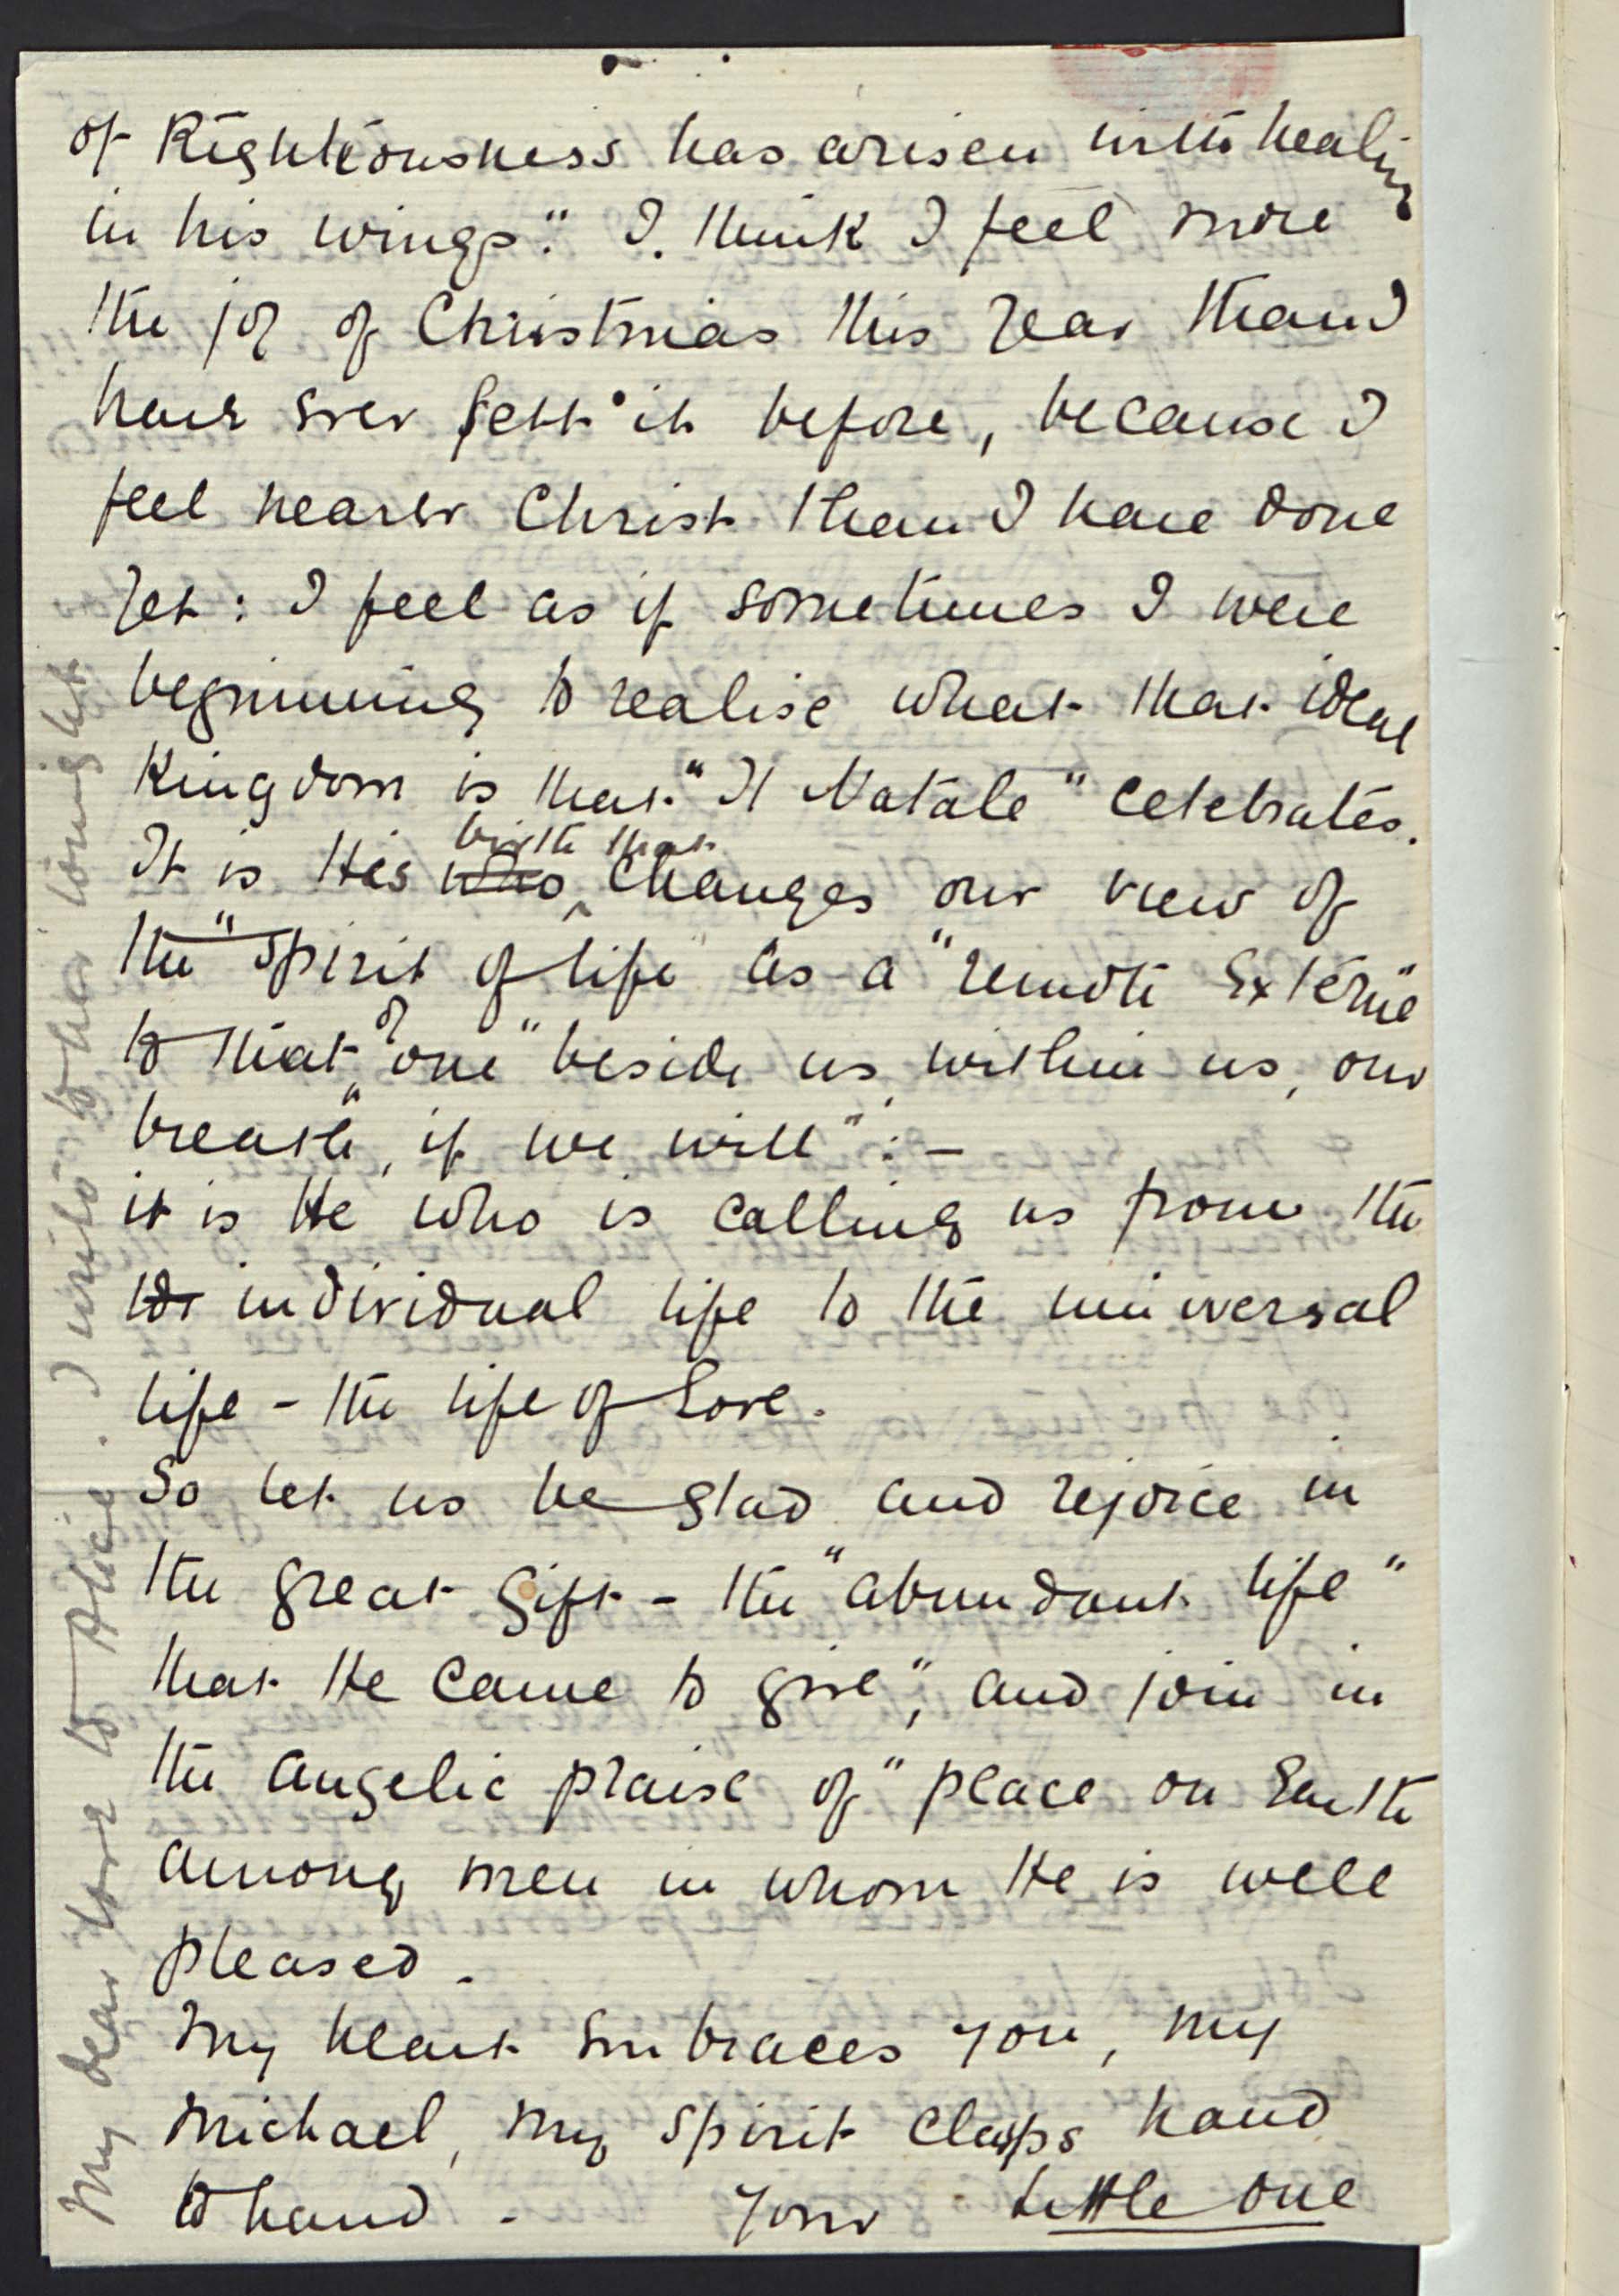 of Righteousness has arisen with healing
in his wings". I think I feel more
the joy of Christmas this year than I
have ever felt it before, because I
feel nearer Christ than I have done
yet: I feel as if sometimes I were
beginning to realise what that ideal
Kingdom is that "Il Natale" celebrates.
It is His who birth that changes our view of
the "spirit of life" as a "remote Extreme"
to that of "one" beside us, within us, our
breath, if we will":-
it is He who is calling us from the
individual life to the universal
life - the life of Love.
So let us be glad and rejoice in
the great gift - the "abundant life"
that He came to give", and join in
the angelic praise of "peace on Earth
among men in whom He is well
pleased.
My heart embraces you, my
Michael, my spirit clasps hand
to hand. Your Little One
My dear love to Alice. I write to her tonight